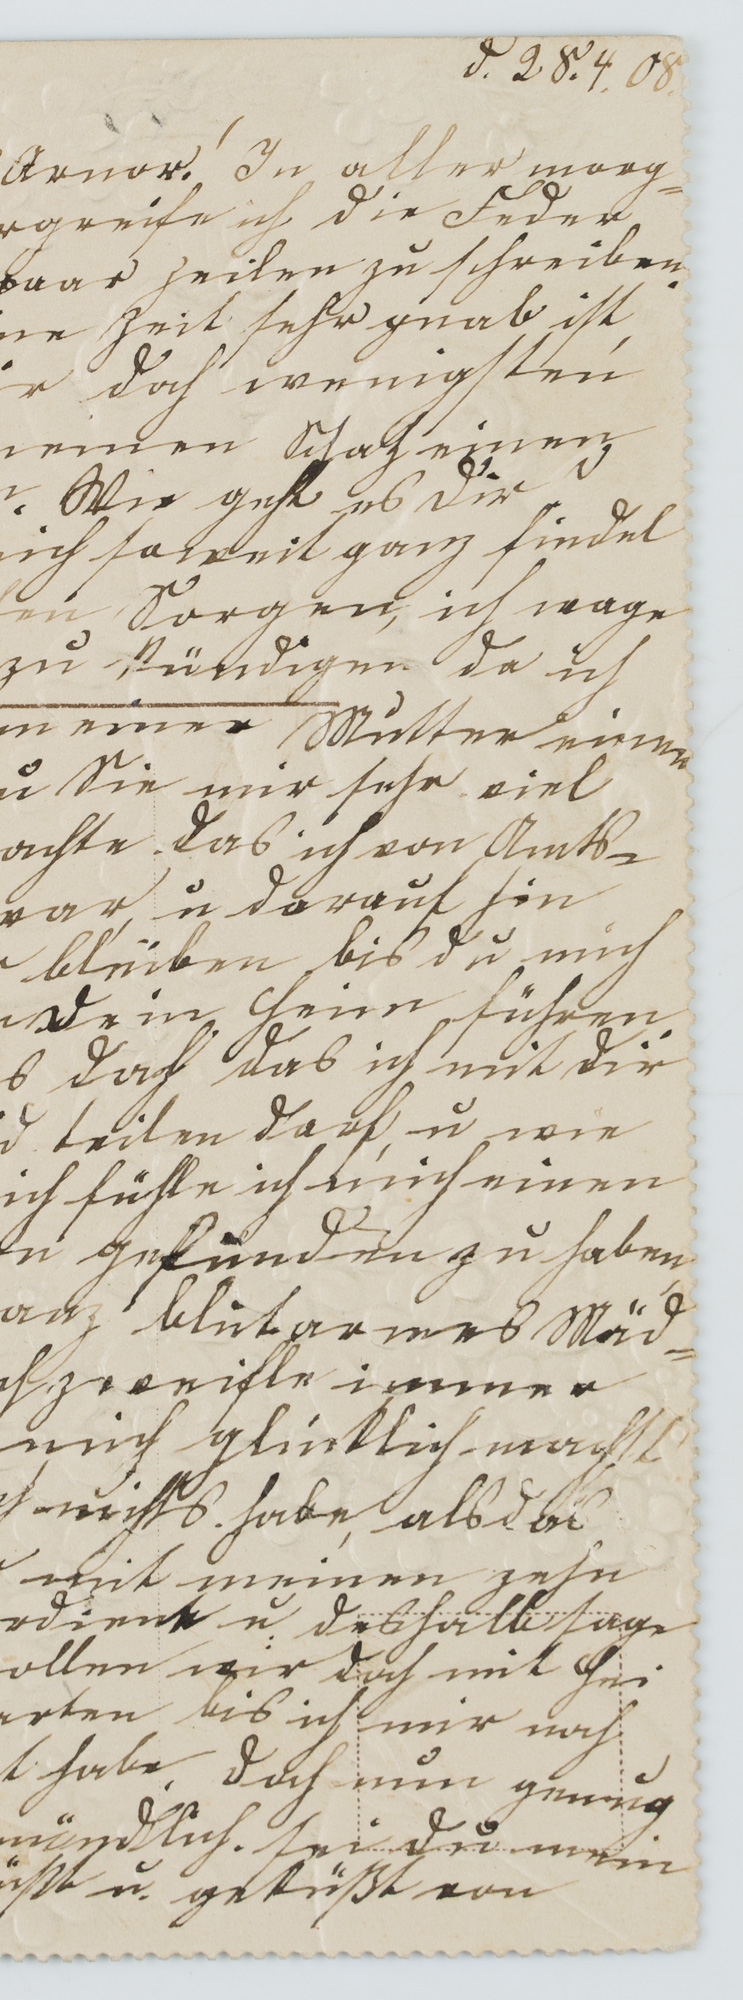 d. 28.4.08.
Arnor! In aller morg-
rgreife ich die Feder
paar Zeilen zu schreiben.
ine Zeit sehr gnab ist,
ir doch wenigsten
meinen Schatz einen
n. Wie geht es Dir
ich soweit ganz fiedel
len Sorgen, ich wage
zu kündigen da ich
meiner Mutter einen
u Sie mir sehr viel
achte, das ich von Amts-
war, u darauf hin
r bleiben bis du mich
n Dein Heim führen
s doch das ich mit dir
id teilen darf, u wie
ich fühle ich mich einen
en gefunden zu haben,
anz blutarmes Mäd-
ch zweifle immer
mich glücklich machst
ch nichts habe, als das
mit meinen zehn
rdient u. deshalb sage
ollen wir doch mit Hei
arten bis ich mir noch
t habe. Doch nun genug
mündlich. Sei Du mein
üßt u. geküßt von